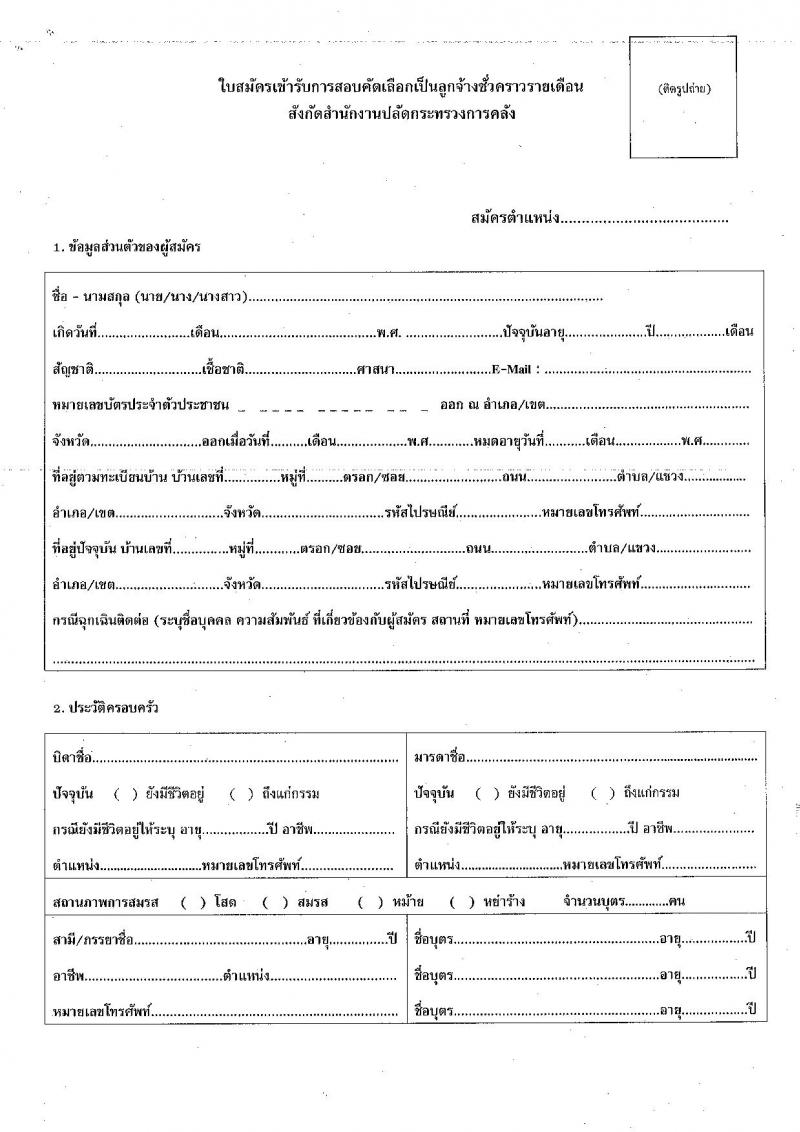 ใบสมัครเข้ารับการสอบคัดเลือกเป็นลูกจ้างชั่วคราวรายเดือน
สังกัดสำนักงานปลัดกระทรวงการคลัง
(ติดรูปถ่าย)
สมัครตำแหน่ง.......................................
1. ข้อมูลส่วนตัวของผู้สมัคร
ชื่อ - นามสกุล (นาย/นาง/นางสาว)....................................................................................
เกิดวันที่......................เดือน.....................................พ.ศ. ......................ปัจจุบันอายุ...................ปี.................เดือน
สัญชาติ.........................เชื้อชาติ..........................ศาสนา.......................E-Mail : .................................................
หมายเลขบัตรประจำตัวประชาชน _ _ _ _ _ _ _ _ _ _ _ _ _ ออก ณ อำเภอ/เขต.................................................
จังหวัด...........................ออกเมื่อวันที่.........เดือน.................พ.ศ...........หมดอายุวันที่..........เดือน................พ.ศ...........
ที่อยู่ตามทะเบียนบ้าน บ้านเลขที่..............หมู่ที่.........ตรอก/ซอย.......................ถนน.....................ตำบล/แขวง...............
อำเภอ/เขต.........................จังหวัด.............................รหัสไปรษณีย์.....................หมายเลขโทรศัพท์..........................
ที่อยู่ปัจจุบัน บ้านเลขที่..............หมู่ที่...........ตรอก/ซอย.........................ถนน.......................ตำบล/แขวง.......................
อำเภอ/เขต.........................จังหวัด.............................รหัสไปรษณีย์.....................หมายเลขโทรศัพท์..........................
กรณีฉุกเฉินติดต่อ (ระบุชื่อบุคคล ความสัมพันธ์ ที่เกี่ยวข้องกับผู้สมัคร สถานที่ หมายเลขโทรศัพท์)..........................................
..................................................................................................................................................................
2. ประวัติครอบครัว
บิดาชื่อ.......................................................................... มารดาชื่อ......................................................................
ปัจจุบัน ( ) ยังมีชีวิตอยู่ ( ) ถึงแก่กรรม ปัจจุบัน ( ) ยังมีชีวิตอยู่ ( ) ถึงแก่กรรม
กรณียังมีชีวิตอยู่ให้ระบุ อายุ................ปี อาชีพ.................... กรณียังมีชีวิตอยู่ให้ระบุ อายุ................ปี อาชีพ....................
ตำแหน่ง.........................หมายเลขโทรศัพท์...................... ตำแหน่ง.........................หมายเลขโทรศัพท์.......................
สถานภาพการสมรส ( ) โสด ( ) สมรส ( ) หม้าย ( ) หย่าร้าง จำนวนบุตร............คน
สามี/ภรรยาชื่อ..........................................อายุ..............ปี ชื่อบุตร..................................................อายุ................ปี
อาชีพ..................................ตำแหน่ง............................... ชื่อบุตร..................................................อายุ................ปี
หมายเลขโทรศัพท์............................................................ ชื่อบุตร..................................................อายุ................ปี